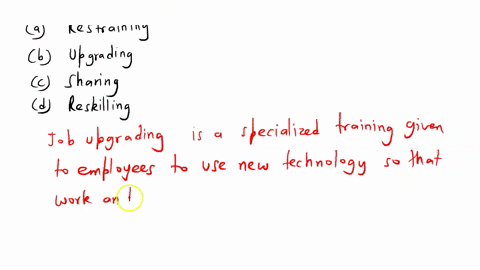 (a) Restraining
(b) Upgrading
(c) Sharing
(d) Reskilling
Job upgrading is a specialized training given
to employees to use new technology so that
work an